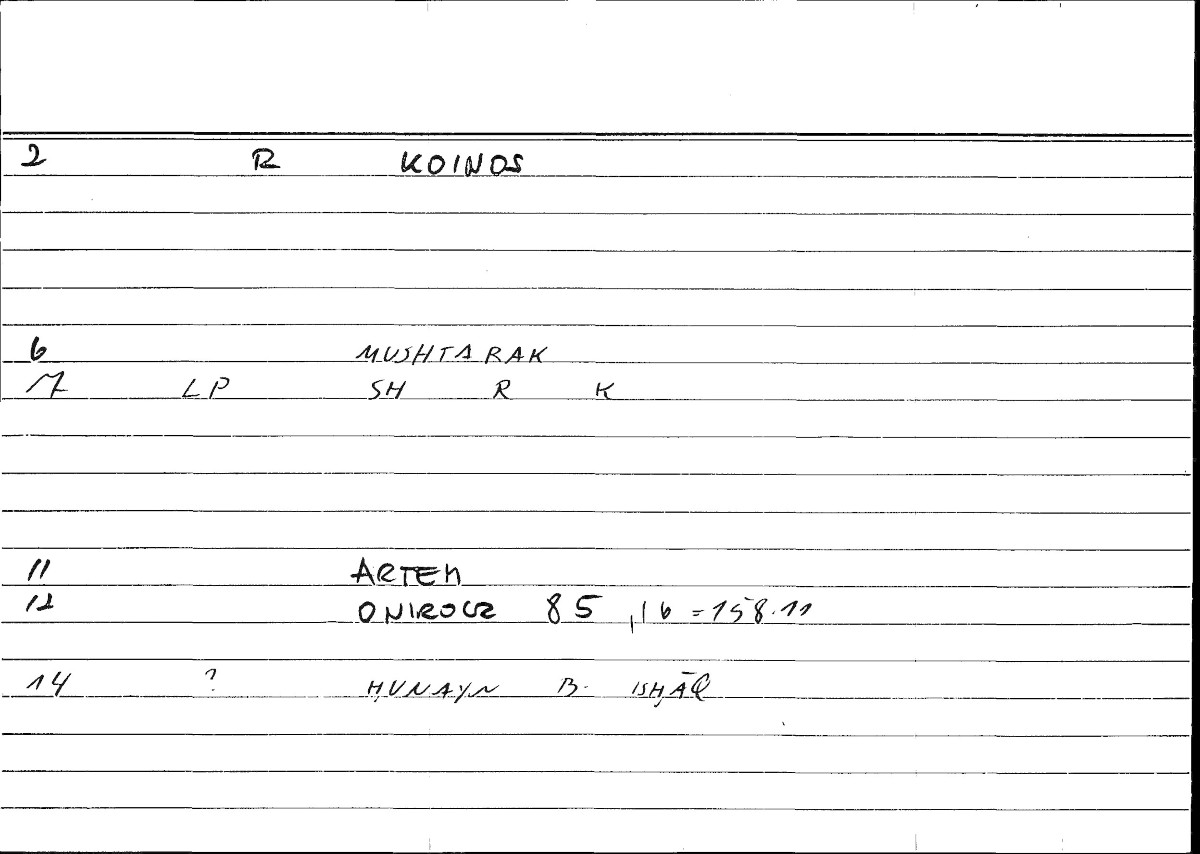 2 R KOINOS
6 MUSHTARAK
7 LP SH R K
11 ARTEM
12 ONIROCR 85,16 = 158.11
14 ? ḤUNAYN B. ISḤĀQ